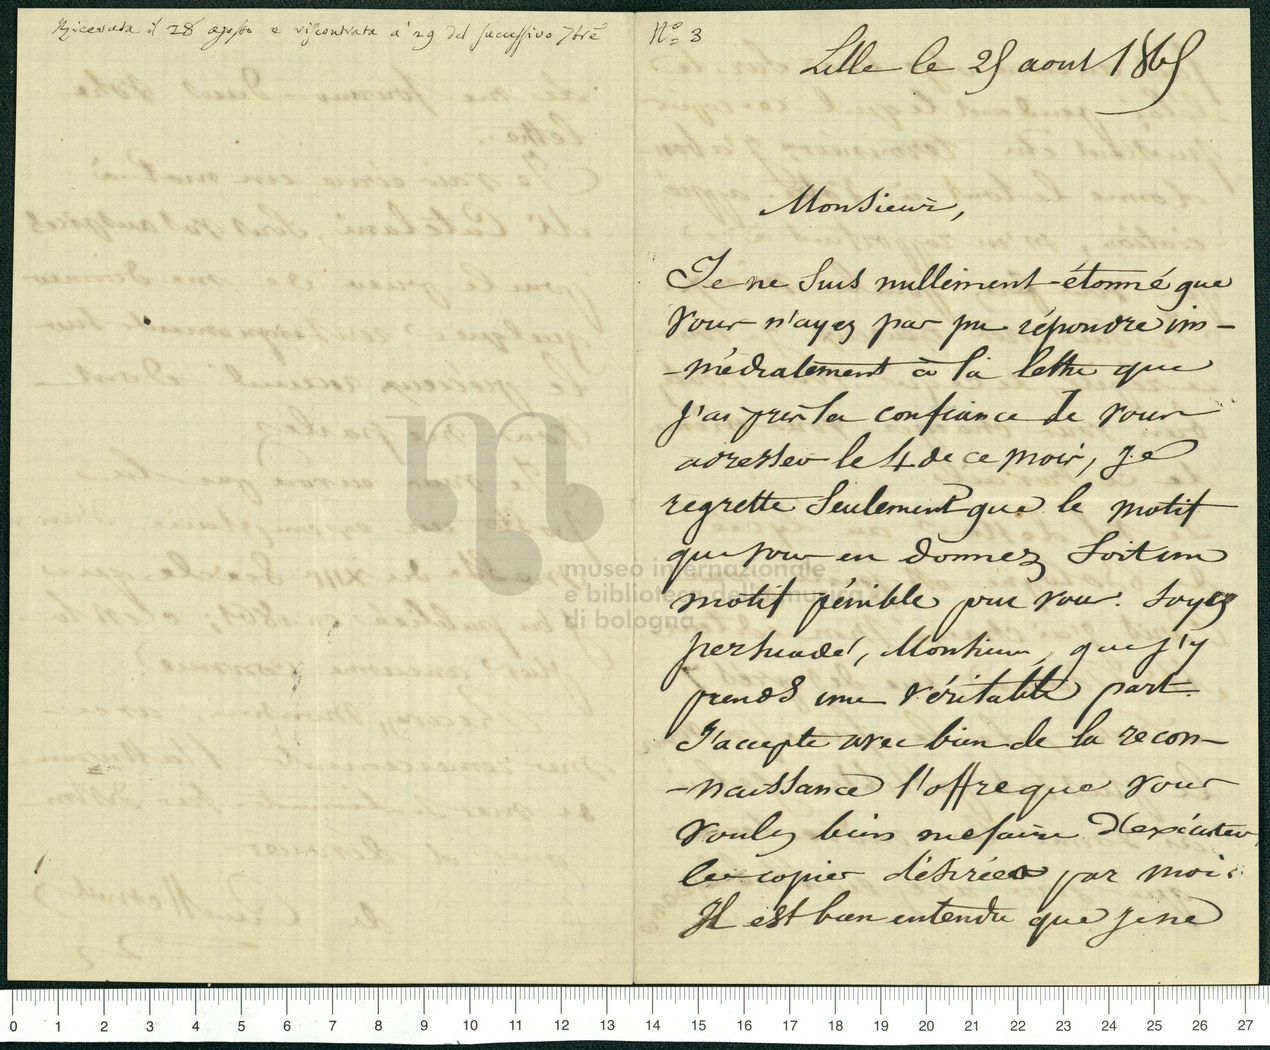 Ricevuta il 28 agosto e riscontrata a' 29 del successivo 7bre
Nº 3
Lille le 25 aout 1865
Monsieur,
Je ne suis nullement étonné que
vous n'ayez pas pu répondre im-
-médiatement à la lettre que
j'ai pris la confiance de vous
adresser le 4 de ce mois, je
regrette seulement que le motif
que vous en donnez soit un
motif pénible pour vous. Soyez
persuadé, Monsieur, que j'y
prends une véritable part.
J'accepte avec bien de la recon-
-naissance l'offre que vous
voulez bien me faire d'exécuter
les copies désirées par moi.
Il est bien entendu que je ne
museo internazionale
e biblioteca della musica
di bologna
0 1 2 3 4 5 6 7 8 9 10 11 12 13 14 15 16 17 18 19 20 21 22 23 24 25 26 27